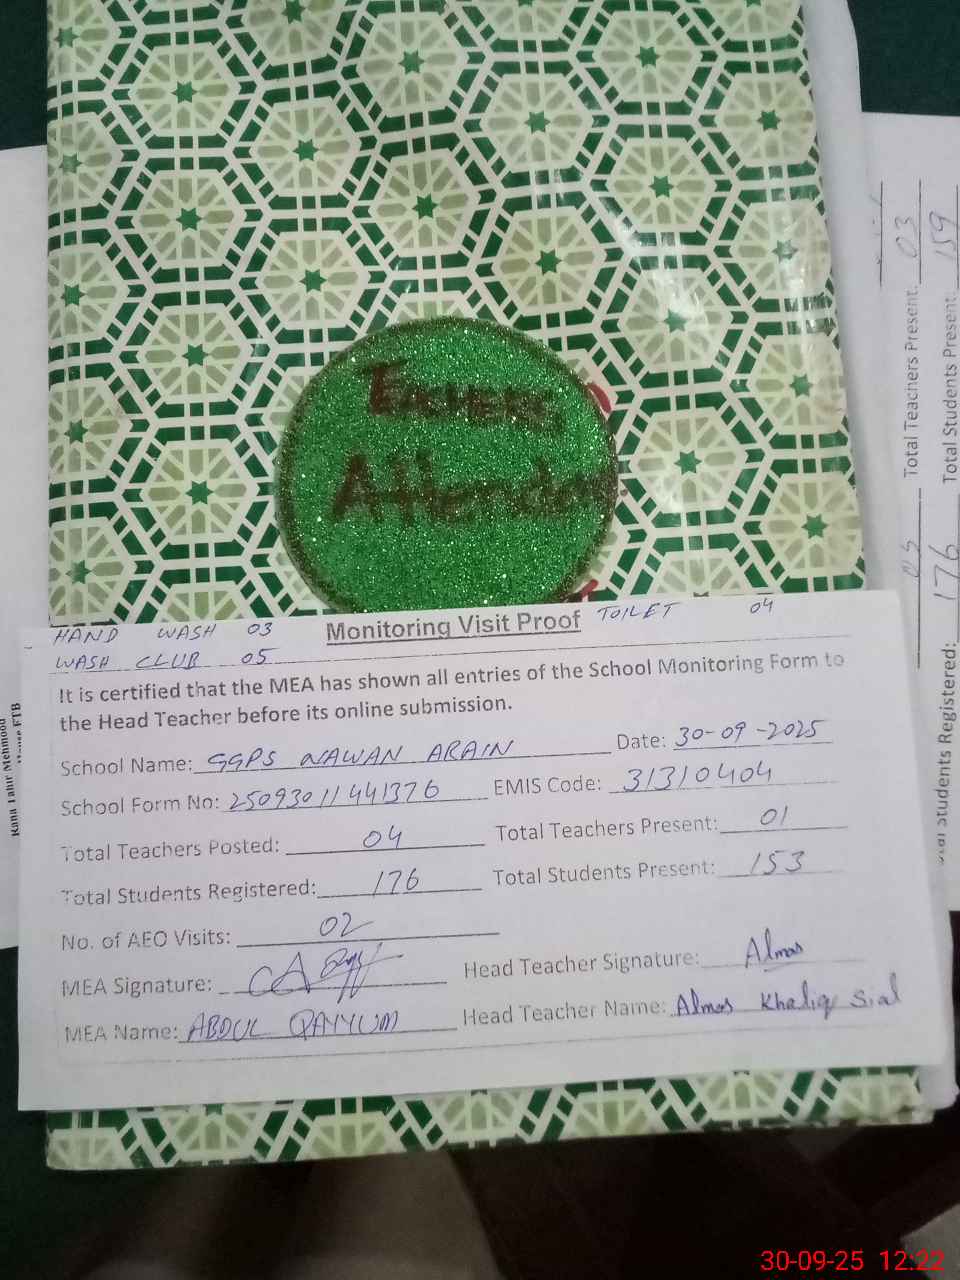 TEACHERS
HAND WASH 03
WASH CLUB 05
Monitoring Visit Proof
TOILET 04
It is certified that the MEA has shown all entries of the School Monitoring Form to
the Head Teacher before its online submission.
School Name: GGPS NAWAN ARAIN Date: 30-09-2025
School Form No: 25093011441376 EMIS Code: 31310404
Total Teachers Posted: 04 Total Teachers Present: 01
Total Students Registered: 176 Total Students Present: 153
No. of AEO Visits: 02
MEA Signature: Head Teacher Signature: Almas
MEA Name: ABDUL QAYYUM Head Teacher Name: Almas Khaliq Sial
Total Teachers Present: 03
176 Total Students Present: 159
Students Registered:
Rana Tahir Mehmood
30-09-25 12:22